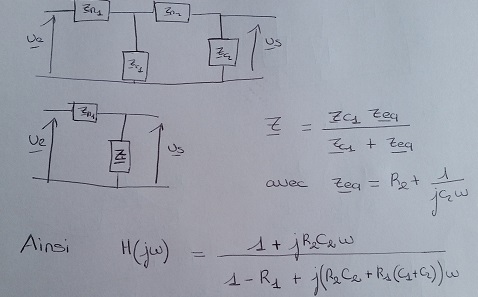 Z_R1 Z_R2
U_e Z_C1 Z_C2 U_s
Z_R1
U_e Z U_s
Z = Z_C1 Z_eq / (Z_C1 + Z_eq)
avec Z_eq = R_2 + 1 / (jC_2ω)
Ainsi H(jω) = (1 + jR_2C_2ω) / (1 - R_1 + j(R_2C_2 + R_1(C_1+C_2))ω)